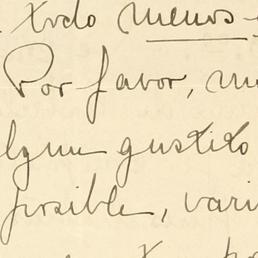 todo menos
Por favor,
algun gustito
posible, vari